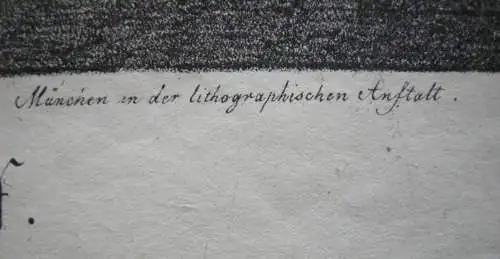 München in der lithographischen Anſtalt.